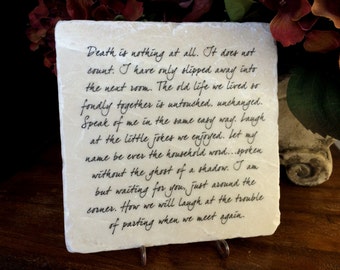 Death is nothing at all. It does not
count. I have only slipped away into
the next room. The old life we lived so
fondly together is untouched, unchanged.
Speak of me in the same easy way. Laugh
at the little jokes we enjoyed. let my
name be ever the household word...spoken
without the ghost of a shadow. I am
but waiting for you just around the
corner. How we will laugh at the trouble
of parting when we meet again.